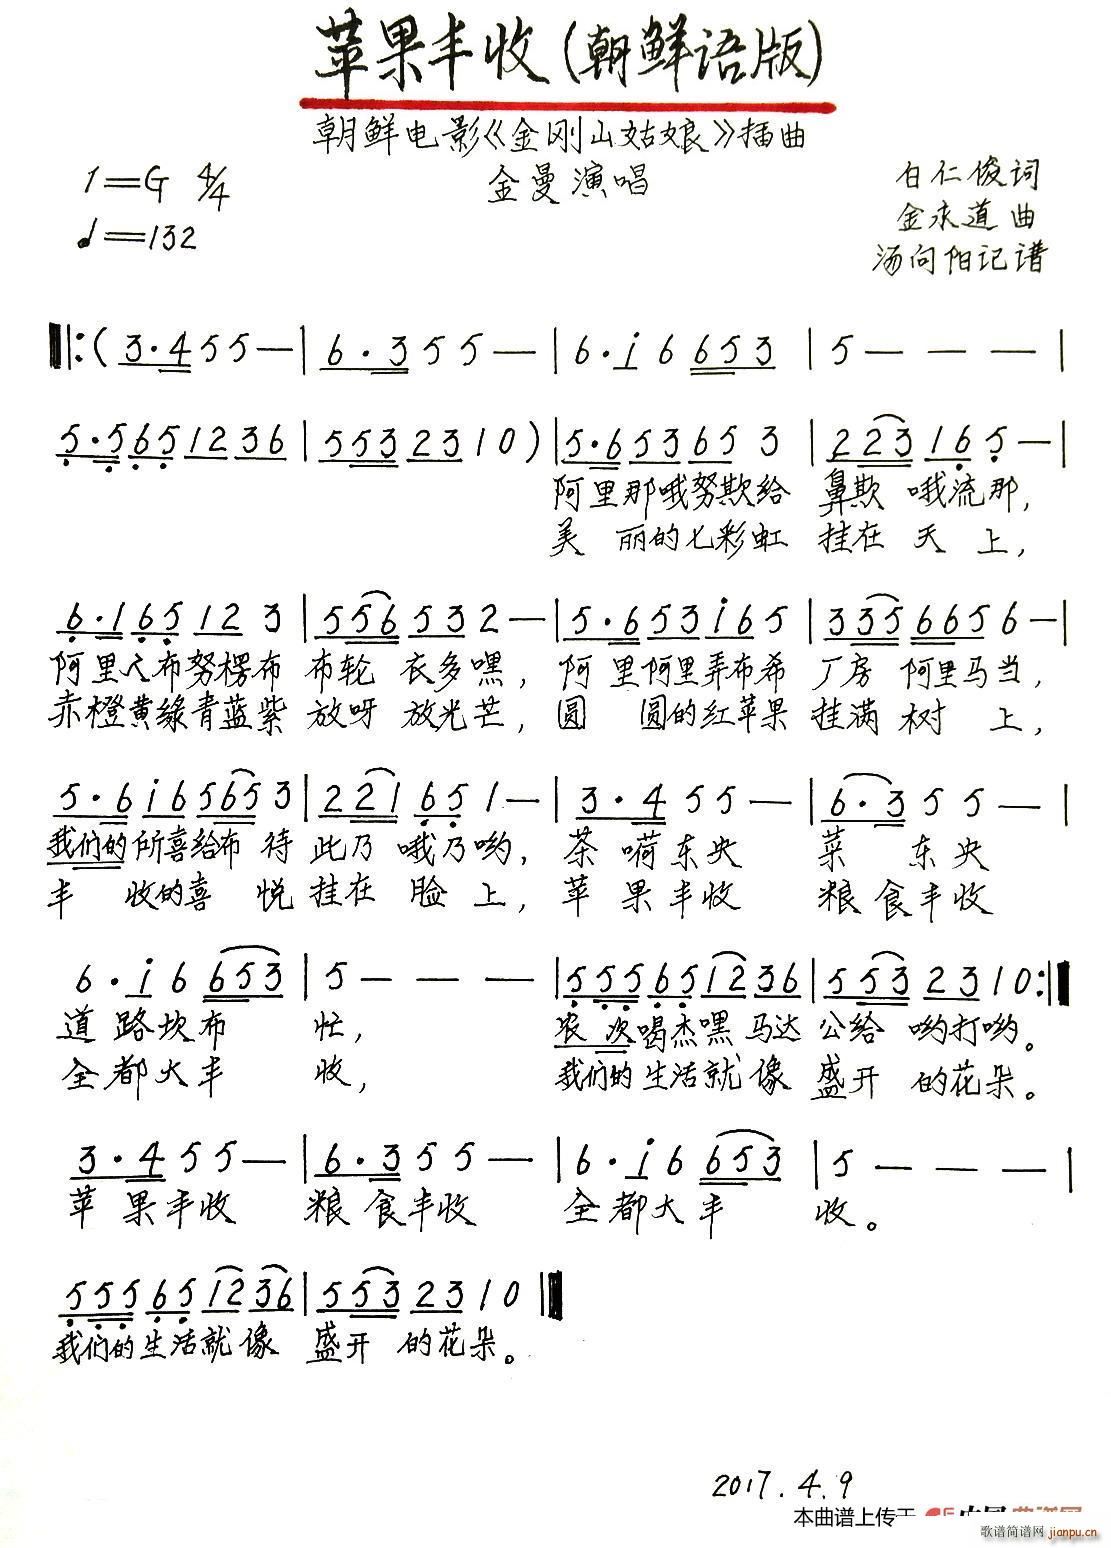 苹果丰收(朝鲜语版)
朝鲜电影《金刚山姑娘》插曲
1=G 4/4 金曼演唱 白仁俊词
♩=132 金永道曲
汤向阳记谱
‖:( 3·4 5 5 — | 6·3 5 5 — | 6·i 6 653 | 5 — — — |
5·565 1236 | 553 2310 ) | 5·653 65 3 | 223 165 — |
阿里那哦努欺给 鼻欺 哦流那,
美 丽的七彩虹 挂在 天 上,
6·165 12 3 | 556 532 — | 5·653 i65 | 335 6656 — |
阿里八布努楞布 布轮 衣多嘿, 阿里阿里弄布希 厂房 阿里马当,
赤橙黄绿青蓝紫 放呀 放光芒, 圆 圆的红苹果 挂满 树 上,
5·6i6 565 3 | 221 651 — | 3·4 5 5 — | 6·3 5 5 — |
我们的所喜给布 待 此乃 哦乃哟, 茶 嗬东央 菜 东央
丰 收的喜 悦 挂在 脸 上, 苹 果丰收 粮食丰收
6·i 6 653 | 5 — — — | 55565 1236 | 553 2310 :‖
道 路坎布 忙, 农 次喝杰嘿 马达 公给 哟打哟。
全都大丰 收, 我们的生活就像 盛开 的花朵。
3·4 5 5 — | 6·3 5 5 — | 6·i 6 653 | 5 — — — |
苹 果丰收 粮食丰收 全都大丰 收。
55565 1236 | 553 2310 ‖
我们的生活就像 盛开 的花朵。
2017.4.9
本曲谱上传于
歌谱简谱网 jianpu.cn